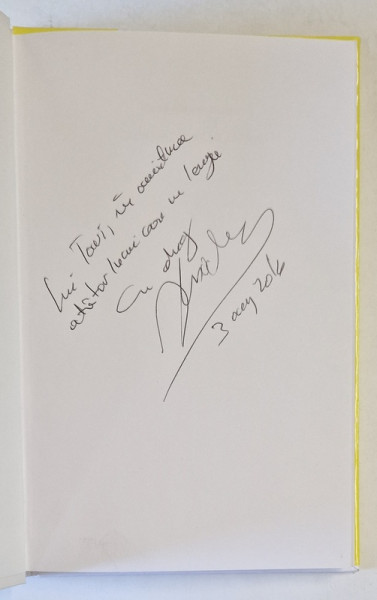 Lui Tavi, în amintirea
atâtor lucruri care ne leagă
Cu drag
3 aug 2016